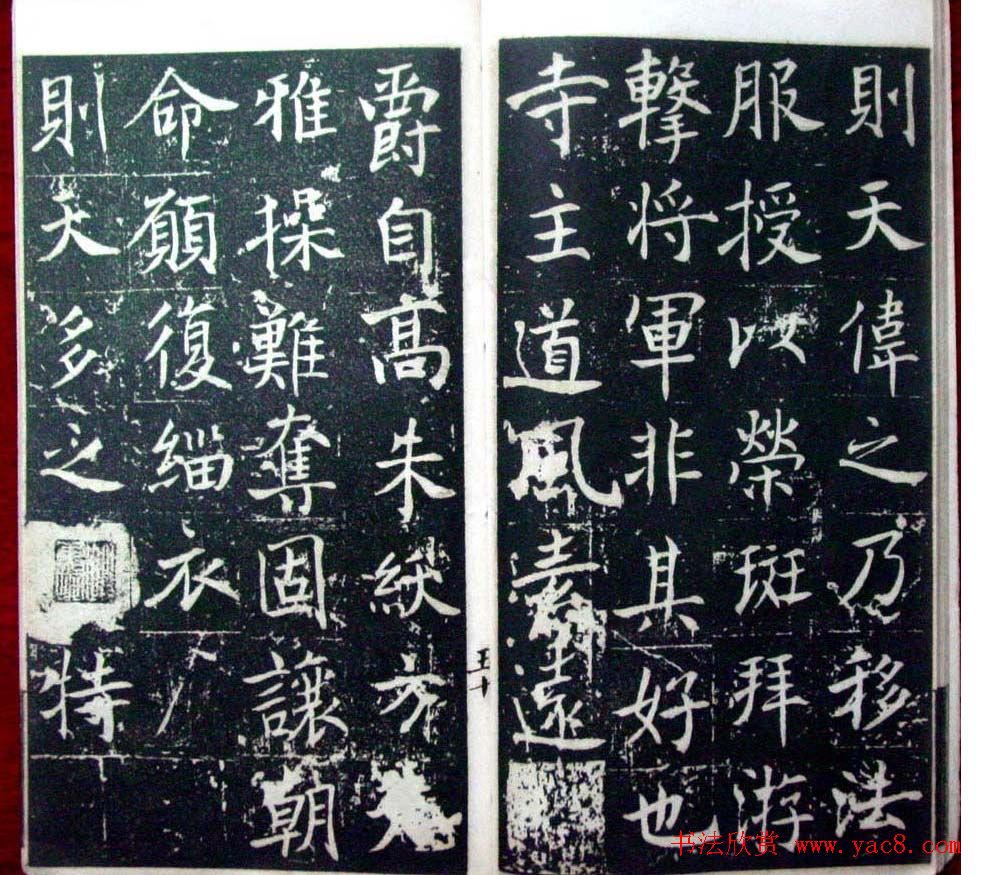 則天偉之乃移法
服授以榮班拜游
擊将軍非其好也
寺主道風素遠
爵自高朱紱方
雅操難奪固讓朝
命願復緇衣
則天多之特
书法欣赏 www.yac8.com